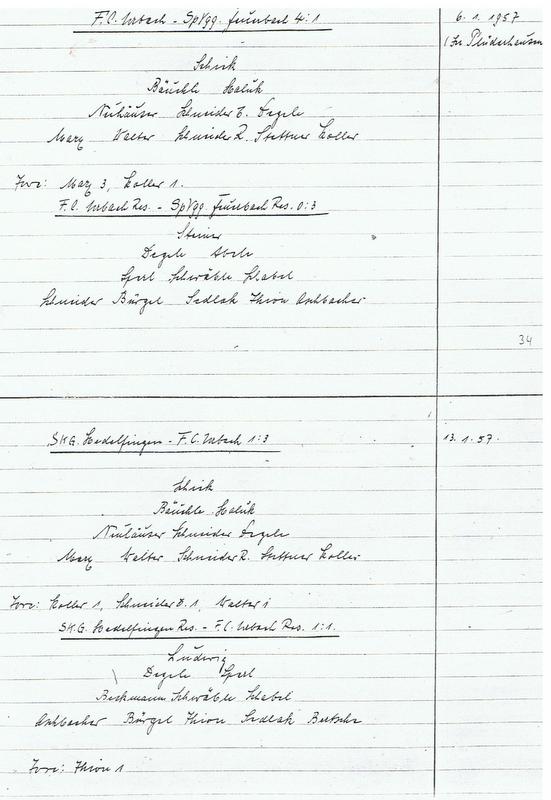 F.C. Urbach - SpVgg. Feuerbach 4:1
6.1.1957
(In Plüderhausen
Schick
Bäuchle Haluk
Neuhäuser Schneider E. Degele
Marx Walter Schneider R. Stettner Koller
Tore: Marx 3, Koller 1.
F.C. Urbach Res. - SpVgg. Feuerbach Res. 0:3
Steiner
Degele Aberle
Sperl Schwäble Schabel
Schneider Bürgel Sedlak Thion Aschbacher
34
SKG. Hedelfingen - F.C. Urbach 1:3
13.1.57.
Schick
Bäuchle Haluk
Neuhäuser Schneider Degele
Marx Walter Schneider R. Stettner Koller
Tore: Koller 1, Schneider E. 1, Walter 1
SKG. Hedelfingen Res. - F.C. Urbach Res. 1:1.
Ludwig
Degele Sperl
Beckmann Schwäble Schabel
Aschbacher Bürgel Thion Sedlak Butsche
Tore: Thion 1